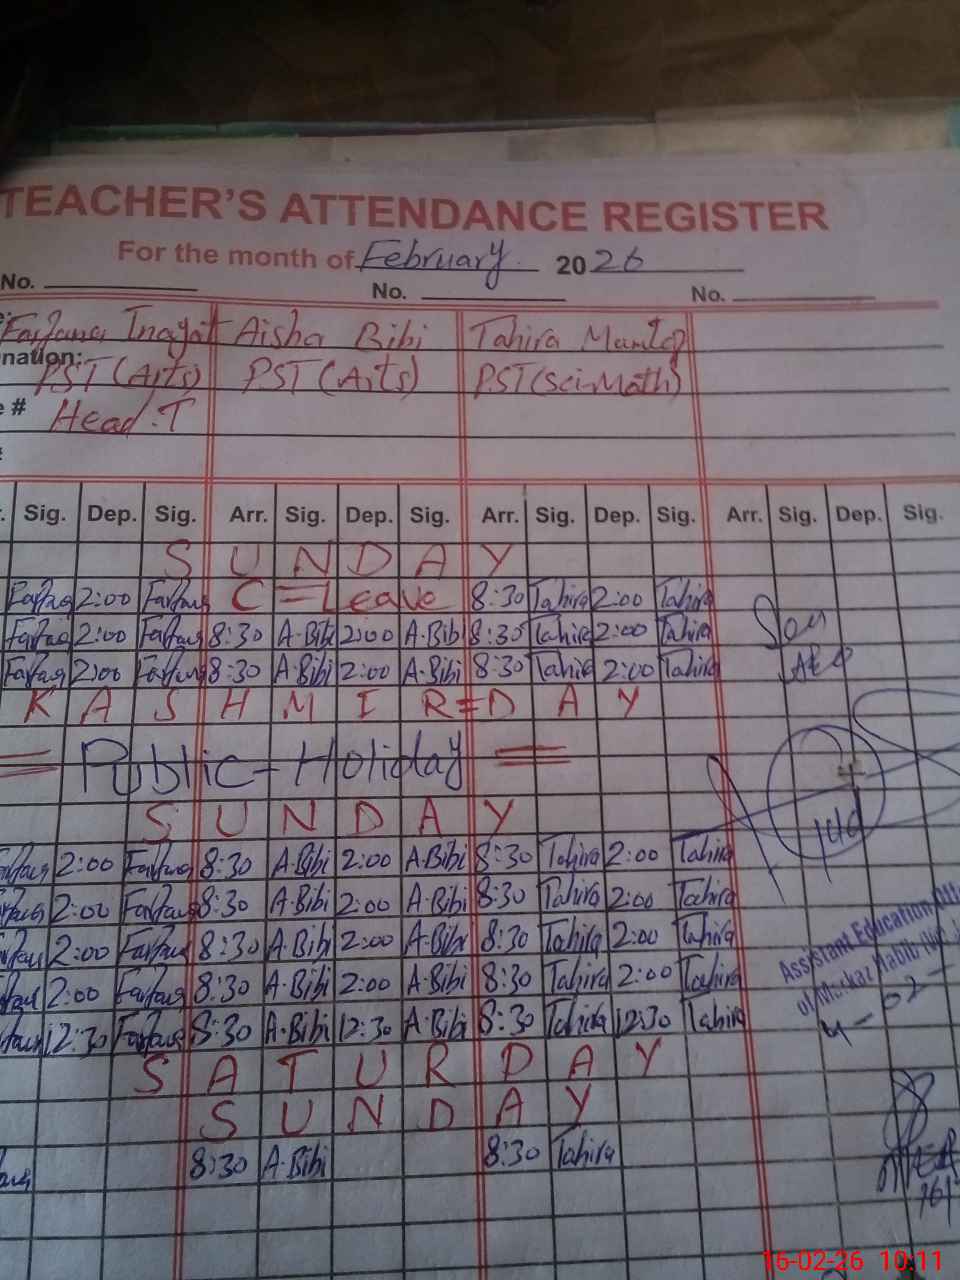 TEACHER'S ATTENDANCE REGISTER
For the month of February 2026
No. No. No.
Farfana Inayat Aisha Bibi Tahira Mumtaz
nation: PST (Arts) PST (Arts) PST (Sci-Math)
e # Head.T
Sig. Dep. Sig. Arr. Sig. Dep. Sig. Arr. Sig. Dep. Sig. Arr. Sig. Dep. Sig.
SUNDAY
2:00 C = Leave 8:30 Tahira 2:00 Tahira
2:00 8:30 A.Bibi 2:00 A.Bibi 8:30 Tahira 2:00 Tahira
2:00 8:30 A.Bibi 2:00 A.Bibi 8:30 Tahira 2:00 Tahira
KASHMIR = DAY
= Public - Holiday =
SUNDAY
2:00 8:30 A.Bibi 2:00 A.Bibi 8:30 Tahira 2:00 Tahira
2:00 8:30 A.Bibi 2:00 A.Bibi 8:30 Tahira 2:00 Tahira
2:00 8:30 A.Bibi 2:00 A.Bibi 8:30 Tahira 2:00 Tahira
2:00 8:30 A.Bibi 2:00 A.Bibi 8:30 Tahira 2:00 Tahira
12:30 8:30 A.Bibi 12:30 A.Bibi 8:30 Tahira 12:30 Tahira
Assistant Education
SATURDAY
SUNDAY
8:30 A.Bibi 8:30 Tahira
16-02-26 10:11